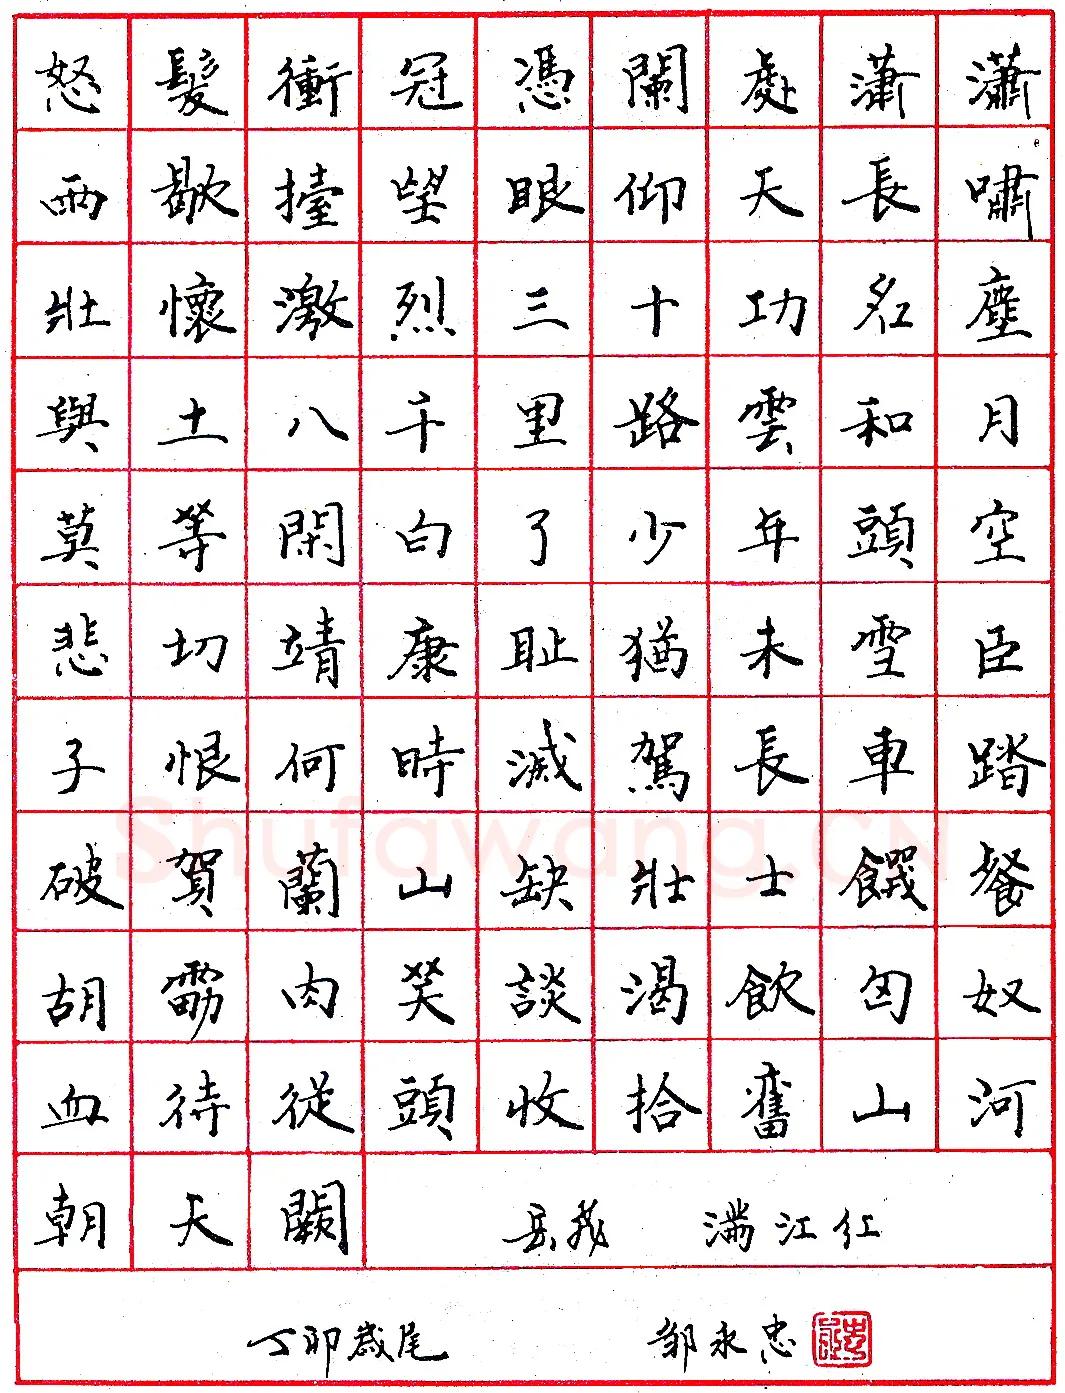 怒髮衝冠憑闌處瀟瀟
雨歇擡望眼仰天長嘯
壯懷激烈三十功名塵
與土八千里路雲和月
莫等閑白了少年頭空
悲切靖康耻猶未雪臣
子恨何時滅駕長車踏
破賀蘭山缺壯士饑餐
胡虜肉笑談渴飲匈奴
血待從頭收拾舊山河
朝天闕 岳飛 滿江紅
丁卯歲尾 鄒永忠
Shufawang.CN